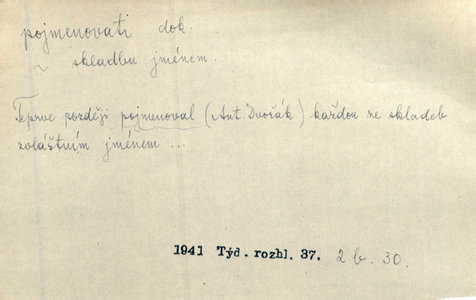 pojmenovati dok.
~ skladbu jménem.
Teprve později pojmenoval (Ant. Dvořák) každou ze skladeb
zvláštním jménem ...
1941 Týd. rozhl. 37. 2 b. 30.